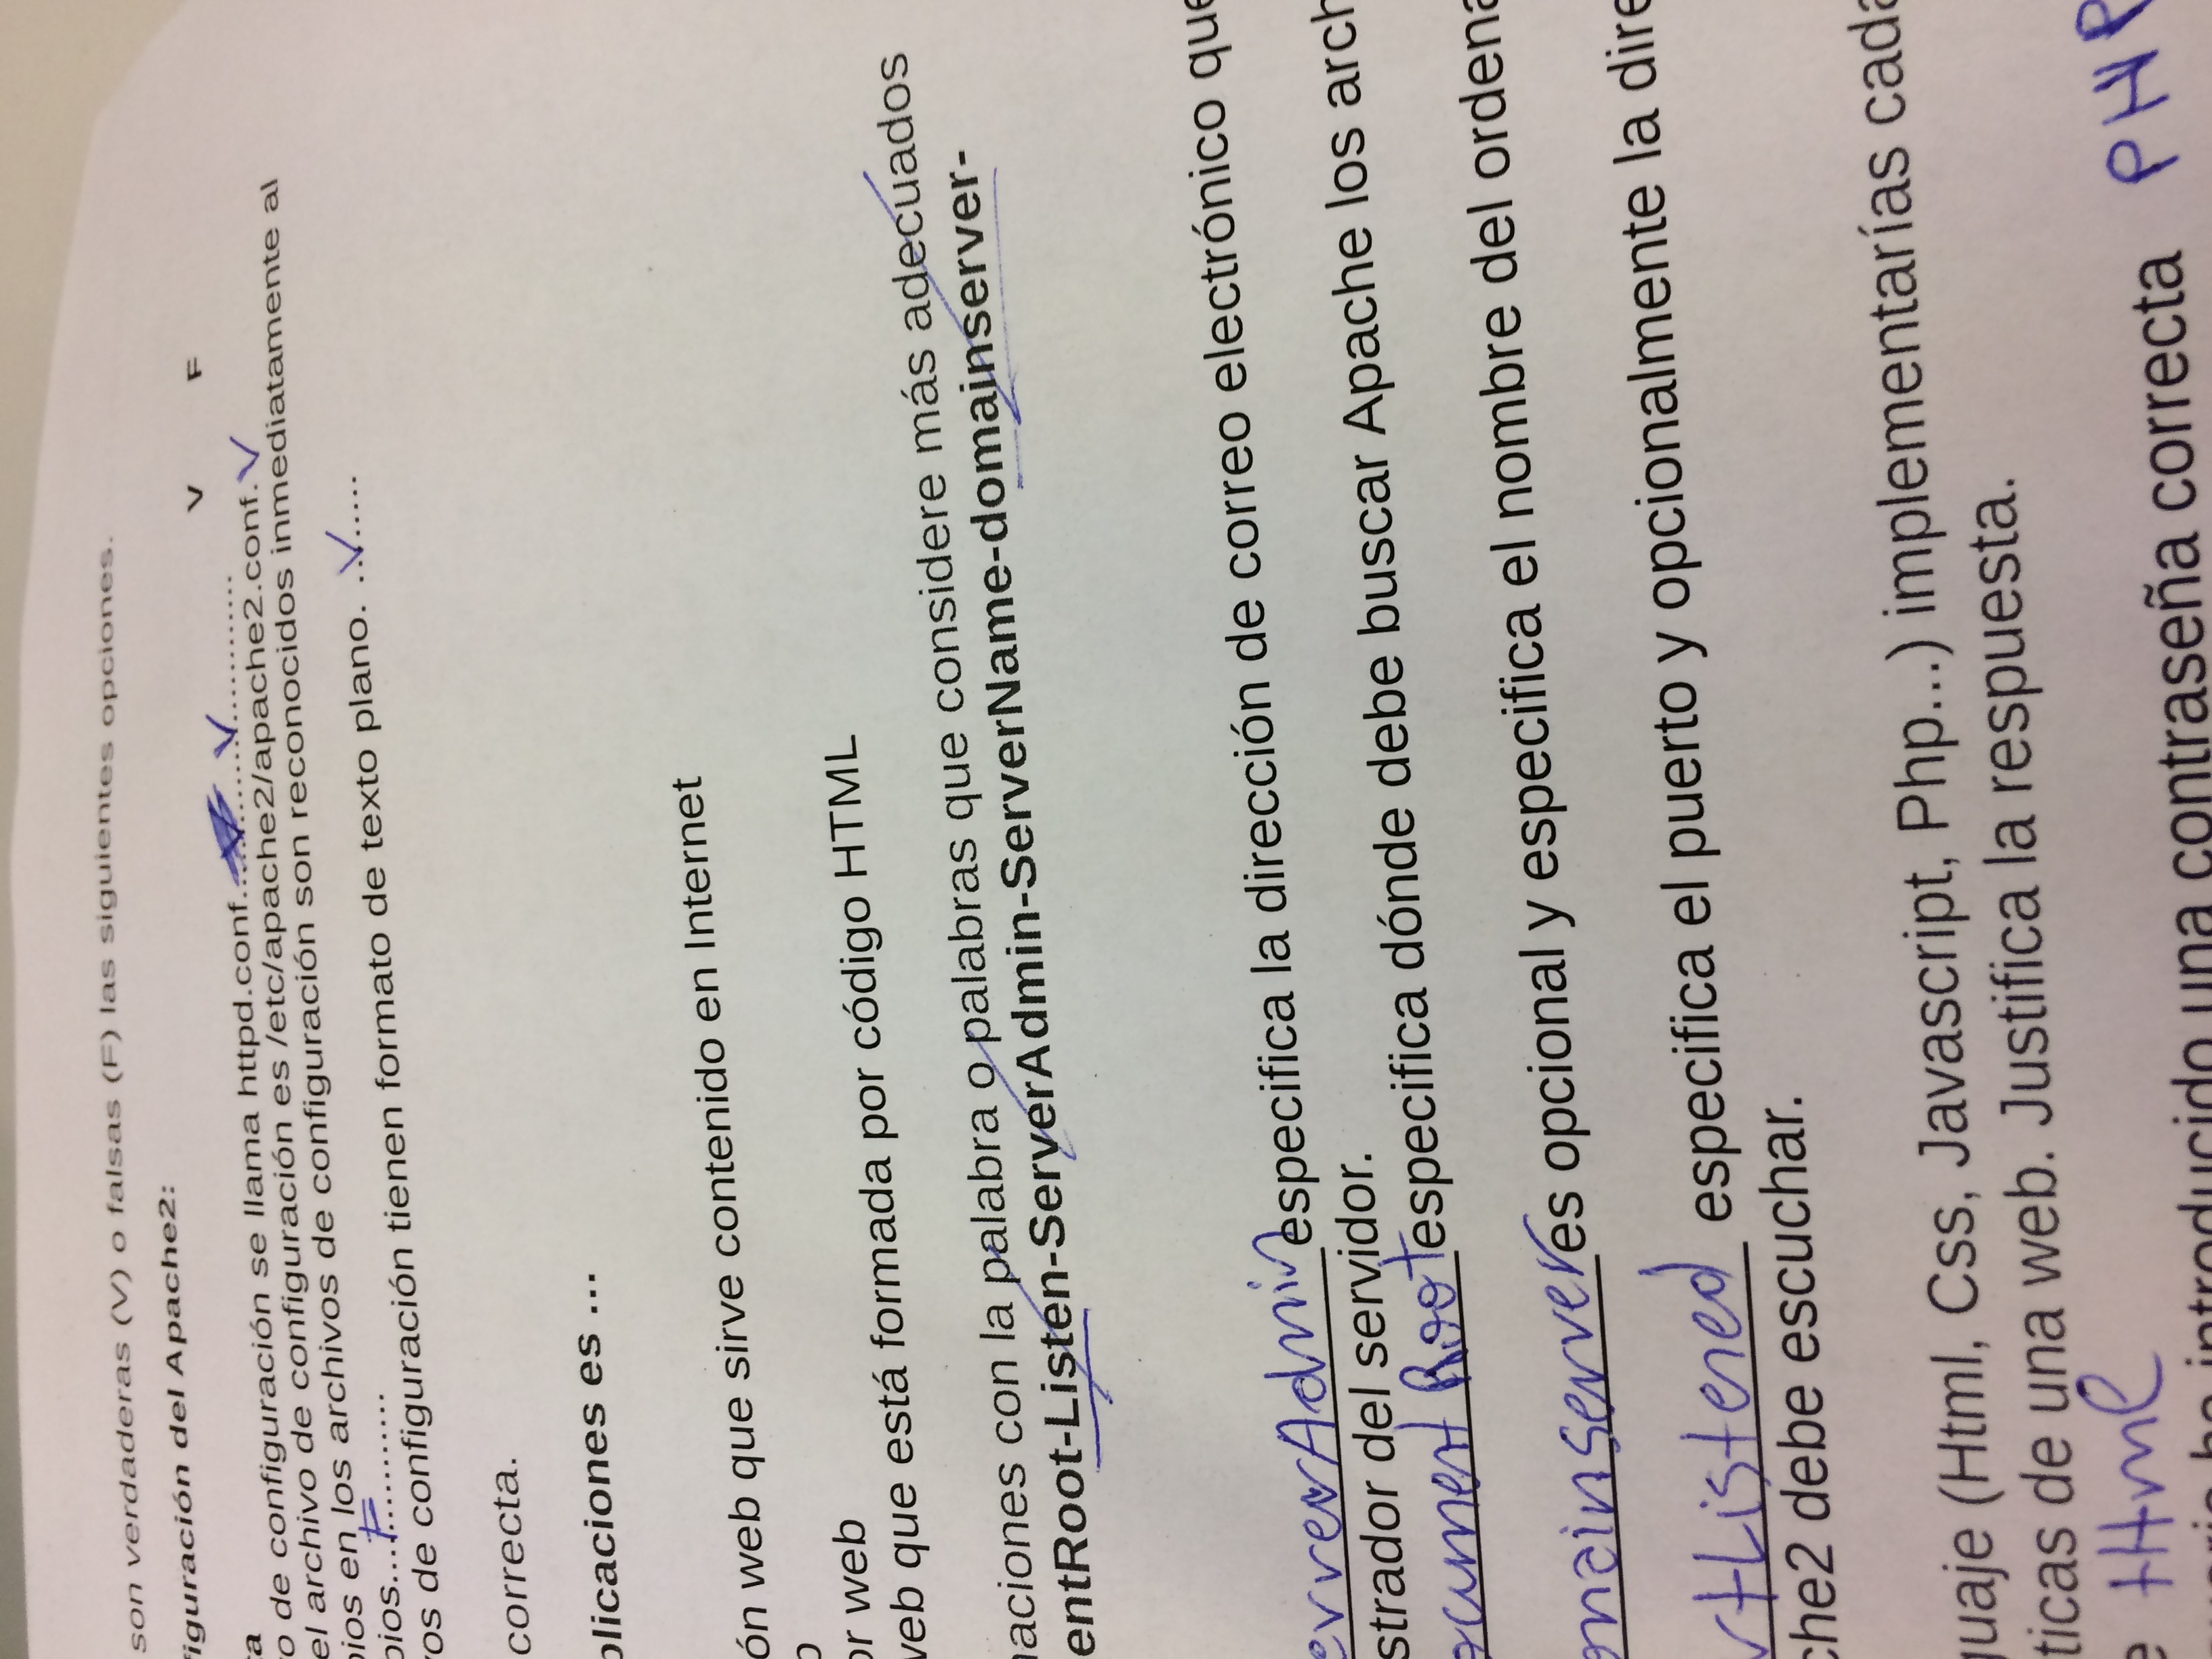 son verdaderas (V) o falsas (F) las siguientes opciones.
figuración del Apache2:
V F
ta
o de configuración se llama httpd.conf.............V..............
el archivo de configuración es /etc/apache2/apache2.conf. V
bios en los archivos de configuración son reconocidos inmediatamente al
bios....F...........
os de configuración tienen formato de texto plano. ...V.....
correcta.
plicaciones es ...
ón web que sirve contenido en Internet
b
or web
web que está formada por código HTML
maciones con la palabra o palabras que considere más adecuados
entRoot-Listen-ServerAdmin-ServerName-domainserver-
erverAdmin especifica la dirección de correo electrónico que
strador del servidor.
ocument Root especifica dónde debe buscar Apache los arch
omainserver es opcional y especifica el nombre del ordena
rtListened especifica el puerto y opcionalmente la dire
che2 debe escuchar.
guaje (Html, Css, Javascript, Php...) implementarías cada
ticas de una web. Justifica la respuesta.
e Html
ha introducido una contraseña correcta PHP